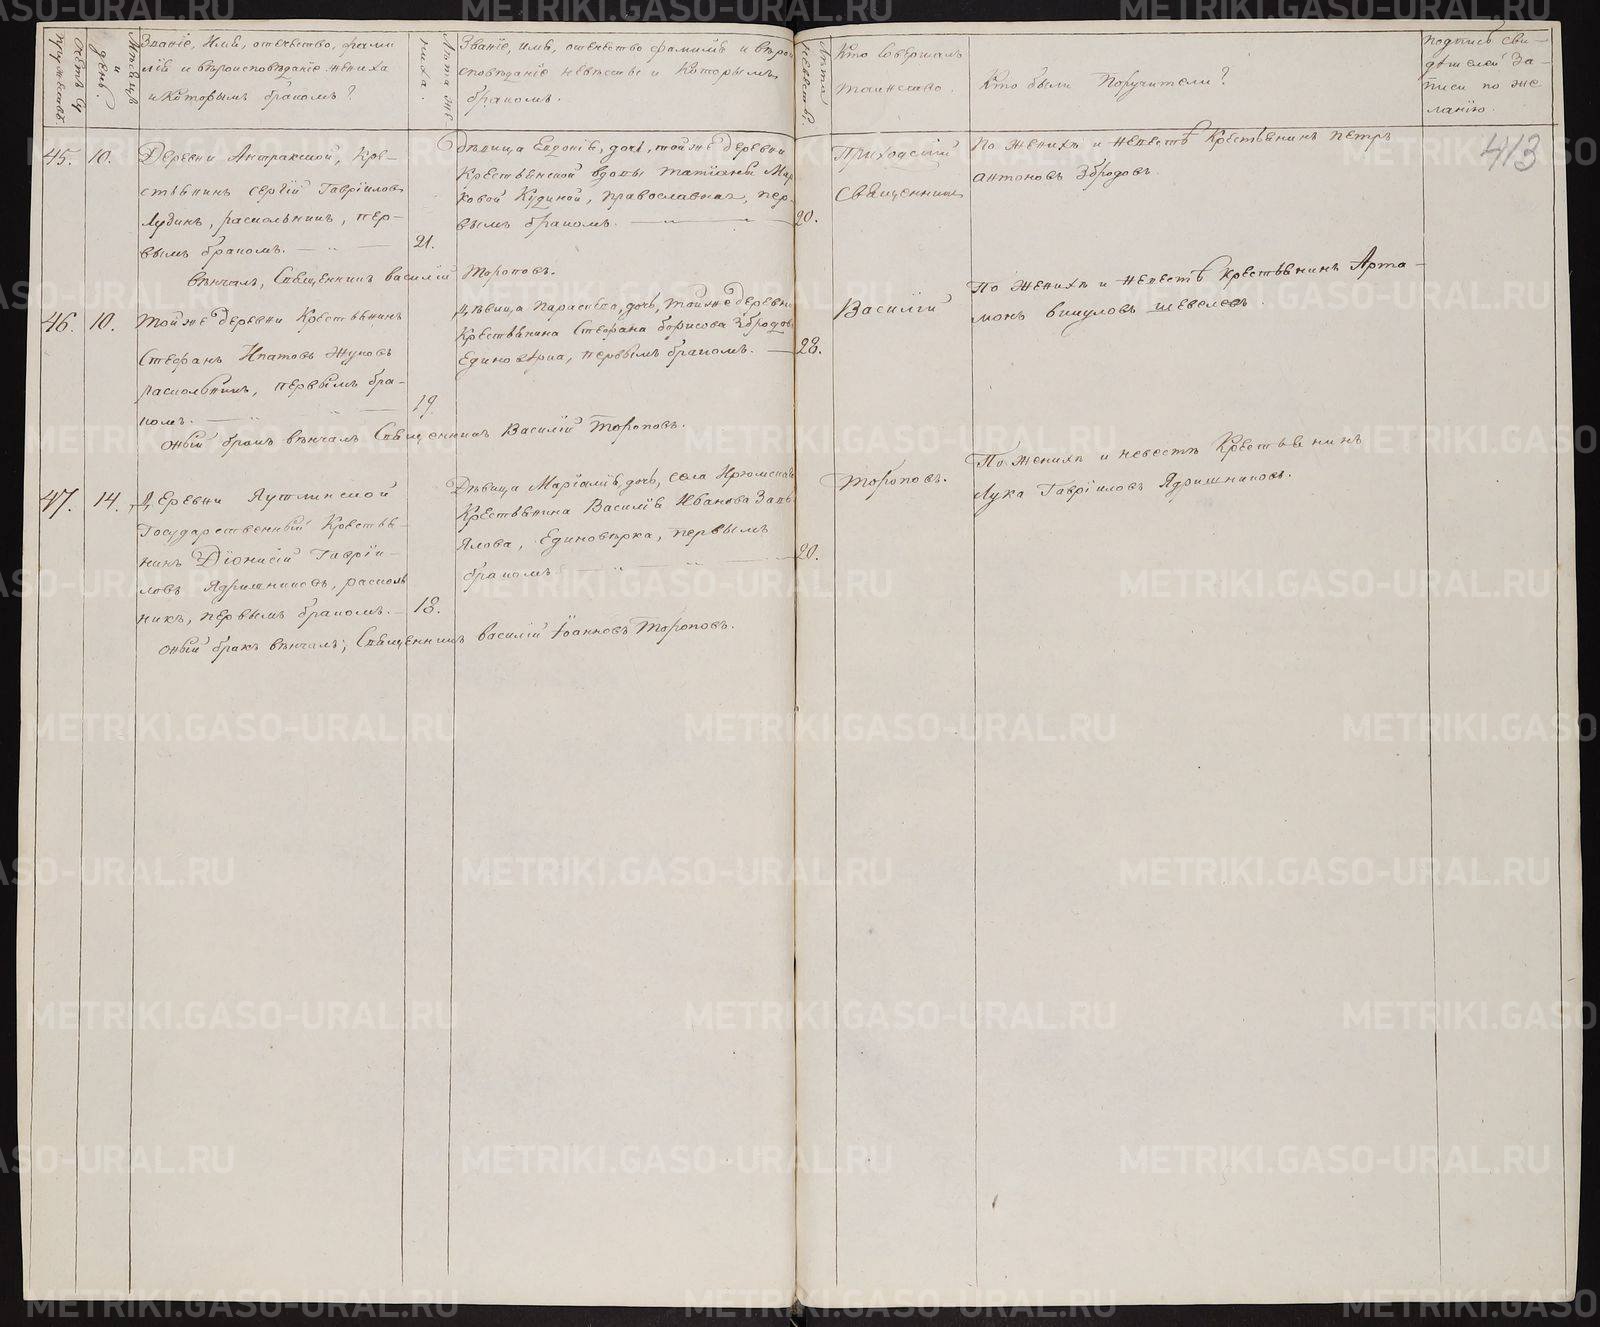 Счетъ супружествъ.
Мѣсяцъ и день.
Званіе, Имя, отечество, фами
лія и вѣроисповѣданіе жениха
и Которымъ бракомъ?
Лѣта же
ниха.
Званіе, имя, отечество фамилія и вѣрои
сповѣданіе невѣсты и Которымъ
бракомъ.
Лѣта невѣсты.
Кто Совершалъ
таинство.
Кто были Поручители?
Подпись сви-
дѣтелей За-
писи по же
ланію.
413
45. 10.
Деревни Антракской, Кре-
стьянинъ Сергій Гавріиловъ
Лудинъ, раскольникъ, пер-
вымъ бракомъ.
21.
Дѣвица Евдокія, дочь, тойже деревни
Крестьянской вдовы Татіаны Мар
ковой Кудиной, православная, пер-
вымъ бракомъ.
20.
Приходскій
Священникъ
По женихѣ и невестѣ Крестьянинъ Петръ
Антоновъ Збродовъ.
Вѣнчалъ, Священникъ Василій Тороповъ.
46. 10.
Тойже деревни Крестьянинъ
Стефанъ Ипатовъ Жуковъ
раскольникъ, первымъ бра-
комъ.
19.
Дѣвица Параскева, дочь, тойже деревни
Крестьянина Стефана Борисова Збродова
Единовѣрка, первымъ бракомъ.
28.
Василій
По женихѣ и невестѣ крестьянинъ Арта-
монъ Викуловъ Шевелевъ.
оный бракъ вѣнчалъ Священникъ Василій Тороповъ.
47. 14.
Деревни Яутлинской
Государственный Крестья-
нинъ Діонисій Гавріи-
ловъ Ядришниковъ, расколь
никъ, первымъ бракомъ.
18.
Дѣвица Маріамія, дочь, села Крюмской
Крестьянина Василія Иванова Завь
Ялова, Единовѣрка, первымъ
бракомъ
20.
Тороповъ.
По женихѣ и невестѣ Крестьянинъ
Лука Гавріиловъ Ядришниковъ.
оный бракъ вѣнчалъ; Священникъ Василій Іоанновъ Тороповъ.
METRIKI.GASO-URAL.RU